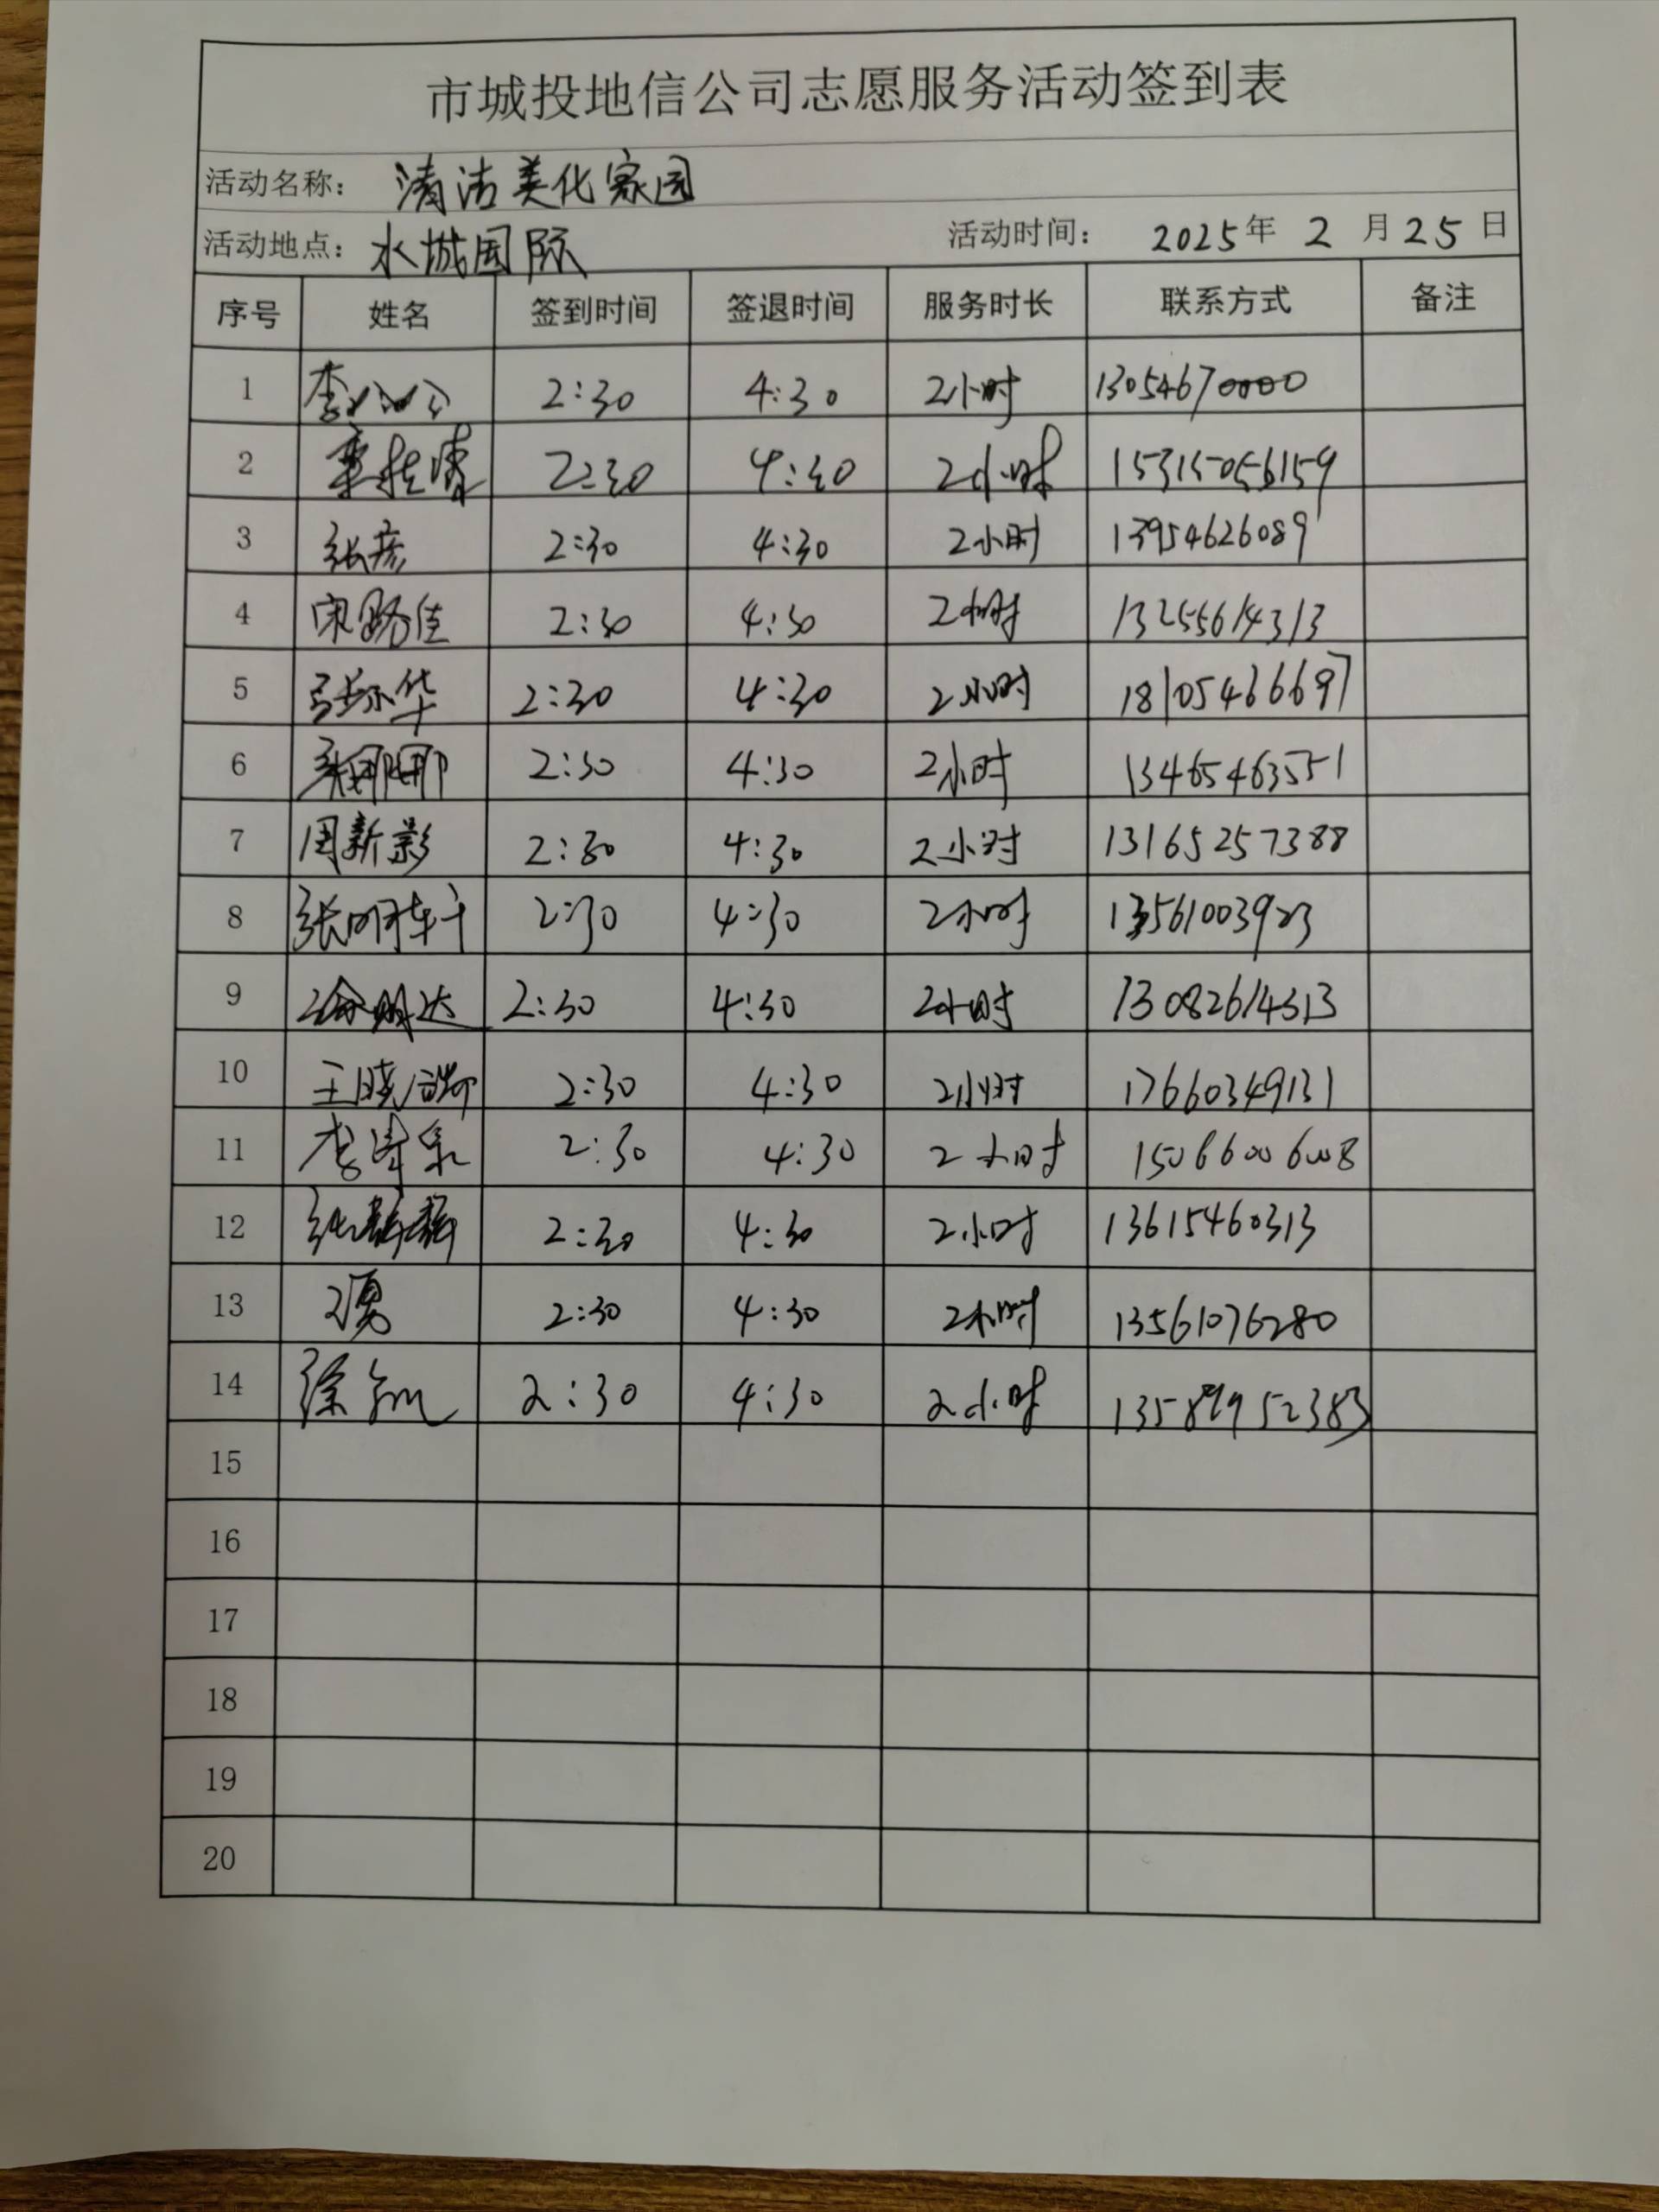 市城投地信公司志愿服务活动签到表
活动名称： 清洁美化家园
活动地点： 水城国际 活动时间： 2025年 2 月 25 日
序号 姓名 签到时间 签退时间 服务时长 联系方式 备注
1 2:30 4:30 2小时 13054670000
2 2:30 4:30 2小时
3 张彦 2:30 4:30 2小时 13954626089
4 宋路佳 2:30 4:30 2小时 13255614313
5 2:30 4:30 2小时 18105466697
6 2:30 4:30 2小时 13465463551
7 周新影 2:30 4:30 2小时 13165257388
8 2:30 4:30 2小时 13561003923
9 2:30 4:30 2小时 13082614313
10 2:30 4:30 2小时 17660349131
11 2:30 4:30 2小时 15066006008
12 张静静 2:30 4:30 2小时 13615460313
13 2:30 4:30 2小时 13561076280
14 2:30 4:30 2小时
15
16
17
18
19
20